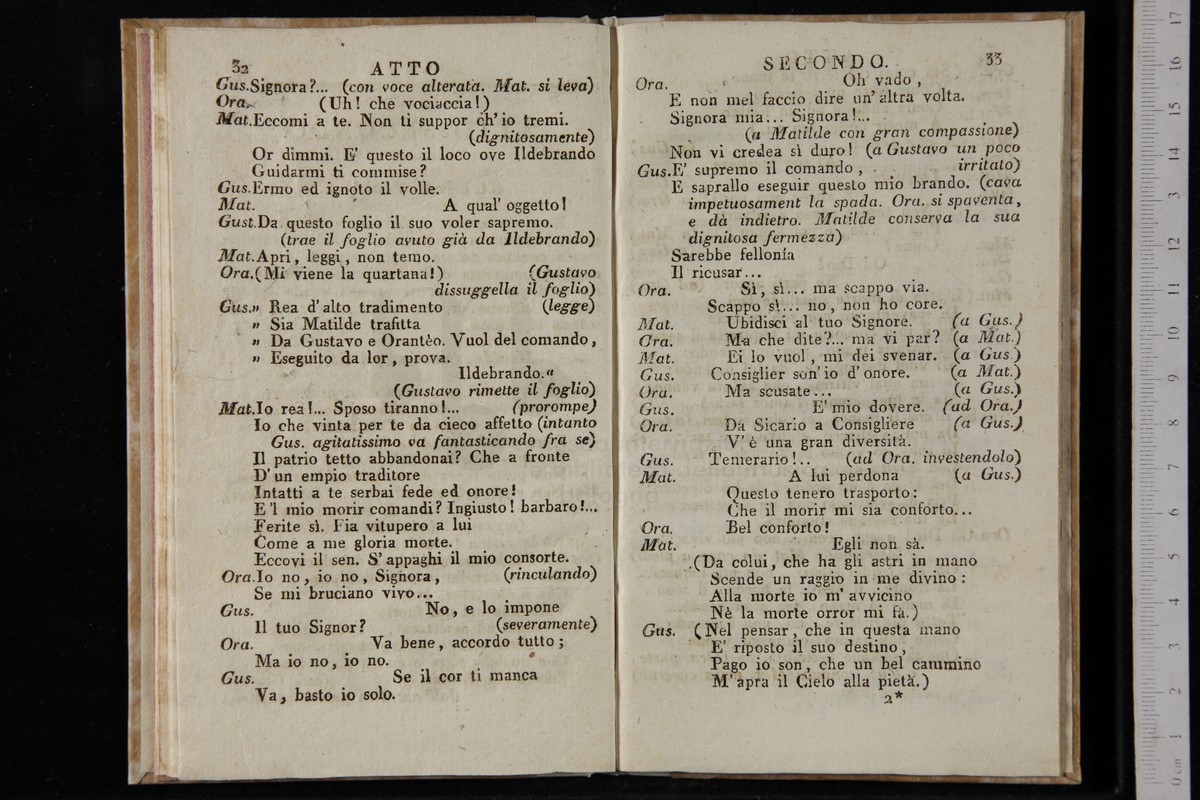 32 ATTO
Gus.Signora?... (con voce alterata. Mat. si leva)
Ora. (Uh! che vociaccia!)
Mat.Eccomi a te. Non ti suppor ch'io tremi.
(dignitosamente)
Or dimmi. E' questo il loco ove Ildebrando
Guidarmi ti commise?
Gus.Ermo ed ignoto il volle.
Mat. A qual' oggetto!
Gust.Da questo foglio il suo voler sapremo.
(trae il foglio avuto già da Ildebrando)
Mat.Apri, leggi, non temo.
Ora.(Mi viene la quartana!) (Gustavo
dissuggella il foglio)
Gus.» Rea d'alto tradimento (legge)
» Sia Matilde trafitta
» Da Gustavo e Orantèo. Vuol del comando,
» Eseguito da lor, prova.
Ildebrando.«
(Gustavo rimette il foglio)
Mat.Io rea!... Sposo tiranno!... (prorompe)
Io che vinta per te da cieco affetto (intanto
Gus. agitatissimo va fantasticando fra se)
Il patrio tetto abbandonai? Che a fronte
D'un empio traditore
Intatti a te serbai fede ed onore!
E'l mio morir comandi? Ingiusto! barbaro!...
Ferite sì. Fia vitupero a lui
Come a me gloria morte.
Eccovi il sen. S'appaghi il mio consorte.
Ora.Io no, io no, Signora, (rinculando)
Se mi bruciano vivo...
Gus. No, e lo impone
Il tuo Signor? (severamente)
Ora. Va bene, accordo tutto;
Ma io no, io no.
Gus. Se il cor ti manca
Va, basto io solo.
SECONDO. 33
Ora. Oh vado,
E non mel faccio dire un'altra volta.
Signora mia... Signora!...
(a Matilde con gran compassione)
Non vi credea sì duro! (a Gustavo un poco
Gus.E' supremo il comando, irritato)
E saprallo eseguir questo mio brando. (cava
impetuosament la spada. Ora. si spaventa,
e dà indietro. Matilde conserva la sua
dignitosa fermezza)
Sarebbe fellonía
Il ricusar...
Ora. Sì, sì... ma scappo via.
Scappo sì... no, non ho core.
Mat. Ubidisci al tuo Signore. (a Gus.)
Ora. Ma che dite?... ma vi par? (a Mat.)
Mat. Ei lo vuol, mi dei svenar. (a Gus.)
Gus. Consiglier son'io d'onore. (a Mat.)
Ora. Ma scusate... (a Gus.)
Gus. E' mio dovere. (ad Ora.)
Ora. Da Sicario a Consigliere (a Gus.)
V'è una gran diversità.
Gus. Temerario!.. (ad Ora. investendolo)
Mat. A lui perdona (a Gus.)
Questo tenero trasporto:
Che il morir mi sia conforto...
Ora. Bel conforto!
Mat. Egli non sà.
(Da colui, che ha gli astri in mano
Scende un raggio in me divino:
Alla morte io m'avvicino
Nè la morte orror mi fà.)
Gus. (Nel pensar, che in questa mano
E' riposto il suo destino,
Pago io son, che un bel cammino
M'apra il Cielo alla pietà.)
2*
0 cm 1 2 3 4 5 6 7 8 9 10 11 12 13 14 15 16 17